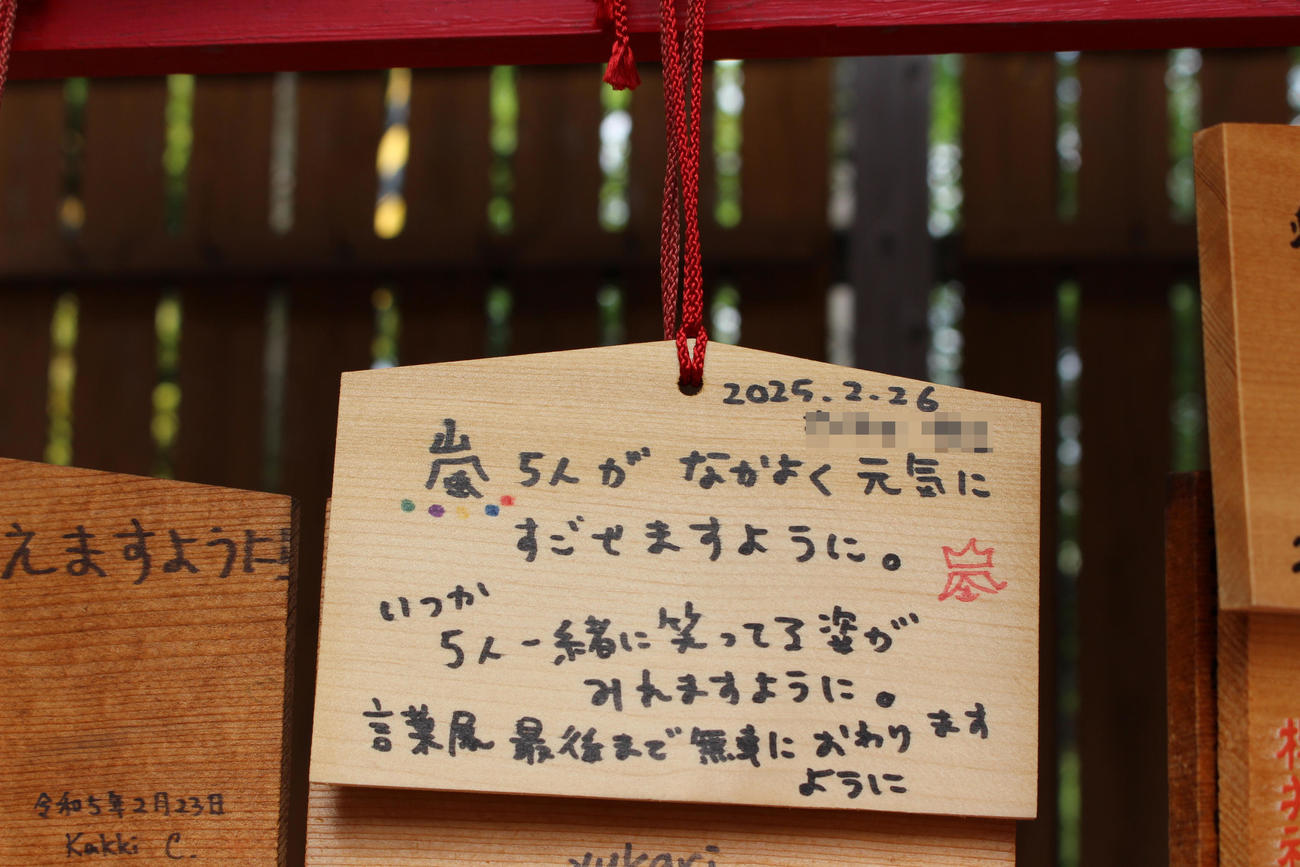 2025.2.26
嵐 5人が なかよく 元気に
すごせますように。
嵐
いつか
5人一緒に笑ってる姿が
みれますように。
言葉展 最後まで無事におわります
ように
えますように
令和5年2月23日
Kakki C.
yukari